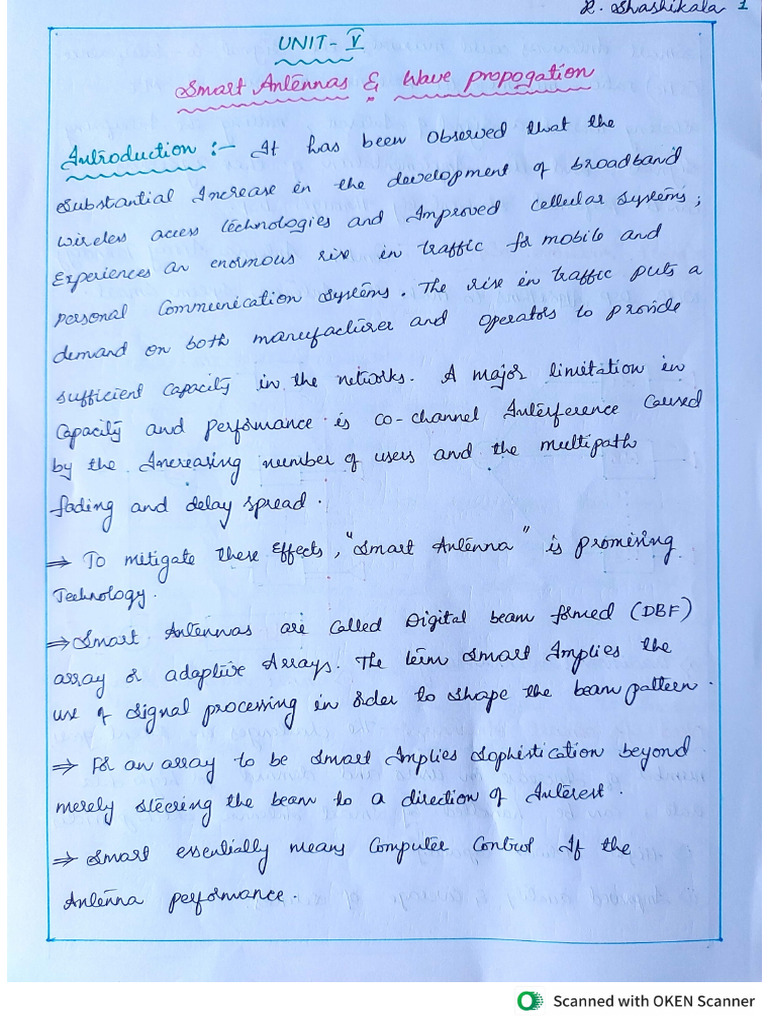 R. Shashikala 1
UNIT-V
Smart Antennas & Wave propogation
Introduction :- It has been observed that the
substantial Increase in the development of broadband
wireless access technologies and Improved cellular systems;
Experiences an enormous rise in traffic for mobile and
personal Communication systems. The rise in traffic puts a
demand on both manufacturer and operators to provide
sufficient capacity in the networks. A major limitation in
capacity and performance is co-channel Interference caused
by the Increasing number of users and the multipath
fading and delay spread.
⇒ To mitigate these Effects, "Smart Antenna" is promising
Technology.
⇒ Smart Antennas are called Digital beam formed (DBF)
array or adaptive Arrays. The term smart Implies the
use of signal processing in order to shape the beam pattern.
⇒ For an array to be smart Implies sophistication beyond
merely steering the beam to a direction of Interest.
⇒ Smart essentially means Computer Control If the
Antenna performance.
Scanned with OKEN Scanner